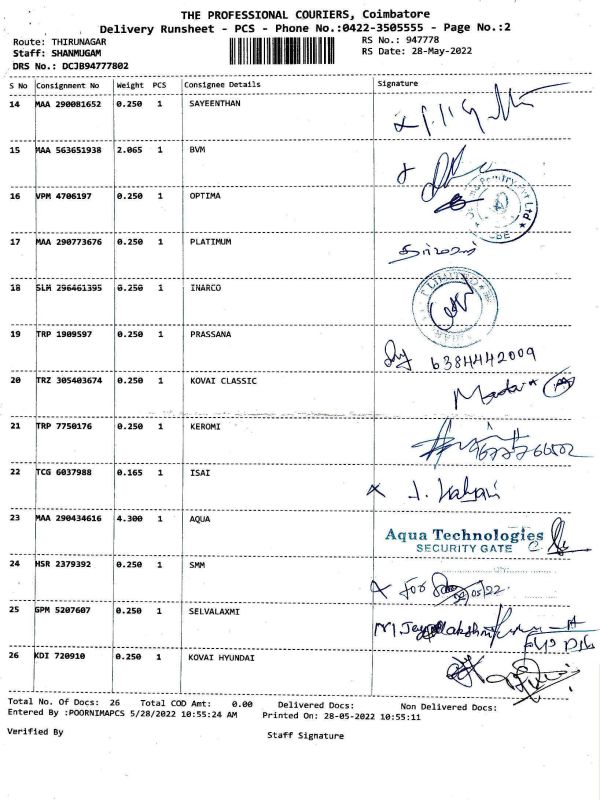 THE PROFESSIONAL COURIERS, Coimbatore
Delivery Runsheet - PCS - Phone No.:0422-3505555 - Page No.:2
Route: THIRUNAGAR RS No.: 947778
Staff: SHANMUGAM RS Date: 28-May-2022
DRS No.: DCJB94777802
S No Consignment No Weight PCS Consignee Details Signature
14 MAA 290081652 0.250 1 SAYEENTHAN
15 MAA 563651938 2.065 1 BVM
16 VPM 4706197 0.250 1 OPTIMA
17 MAA 290773676 0.250 1 PLATIMUM
18 SLM 296461395 0.250 1 INARCO
19 TRP 1909597 0.250 1 PRASSANA
6384442009
20 TRZ 305403674 0.250 1 KOVAI CLASSIC
21 TRP 7750176 0.250 1 KEROMI
22 TCG 6037988 0.165 1 ISAI
23 MAA 290434616 4.300 1 AQUA
Aqua Technologies
SECURITY GATE
24 HSR 2379392 0.250 1 SMM
25 GPM 5207607 0.250 1 SELVALAXMI
26 KDI 720910 0.250 1 KOVAI HYUNDAI
Total No. Of Docs: 26 Total COD Amt: 0.00 Delivered Docs: Non Delivered Docs:
Entered By :POORNIMAPCS 5/28/2022 10:55:24 AM Printed On: 28-05-2022 10:55:11
Verified By Staff Signature